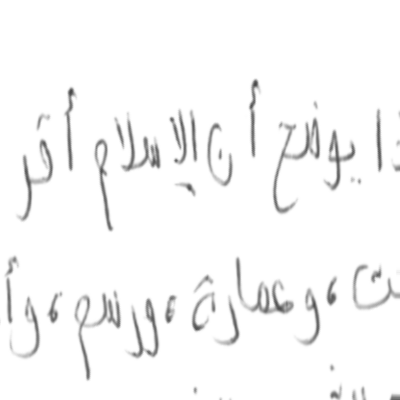 يوضح أن الإسلام أقر
، وعمارة، ورسم، وأ